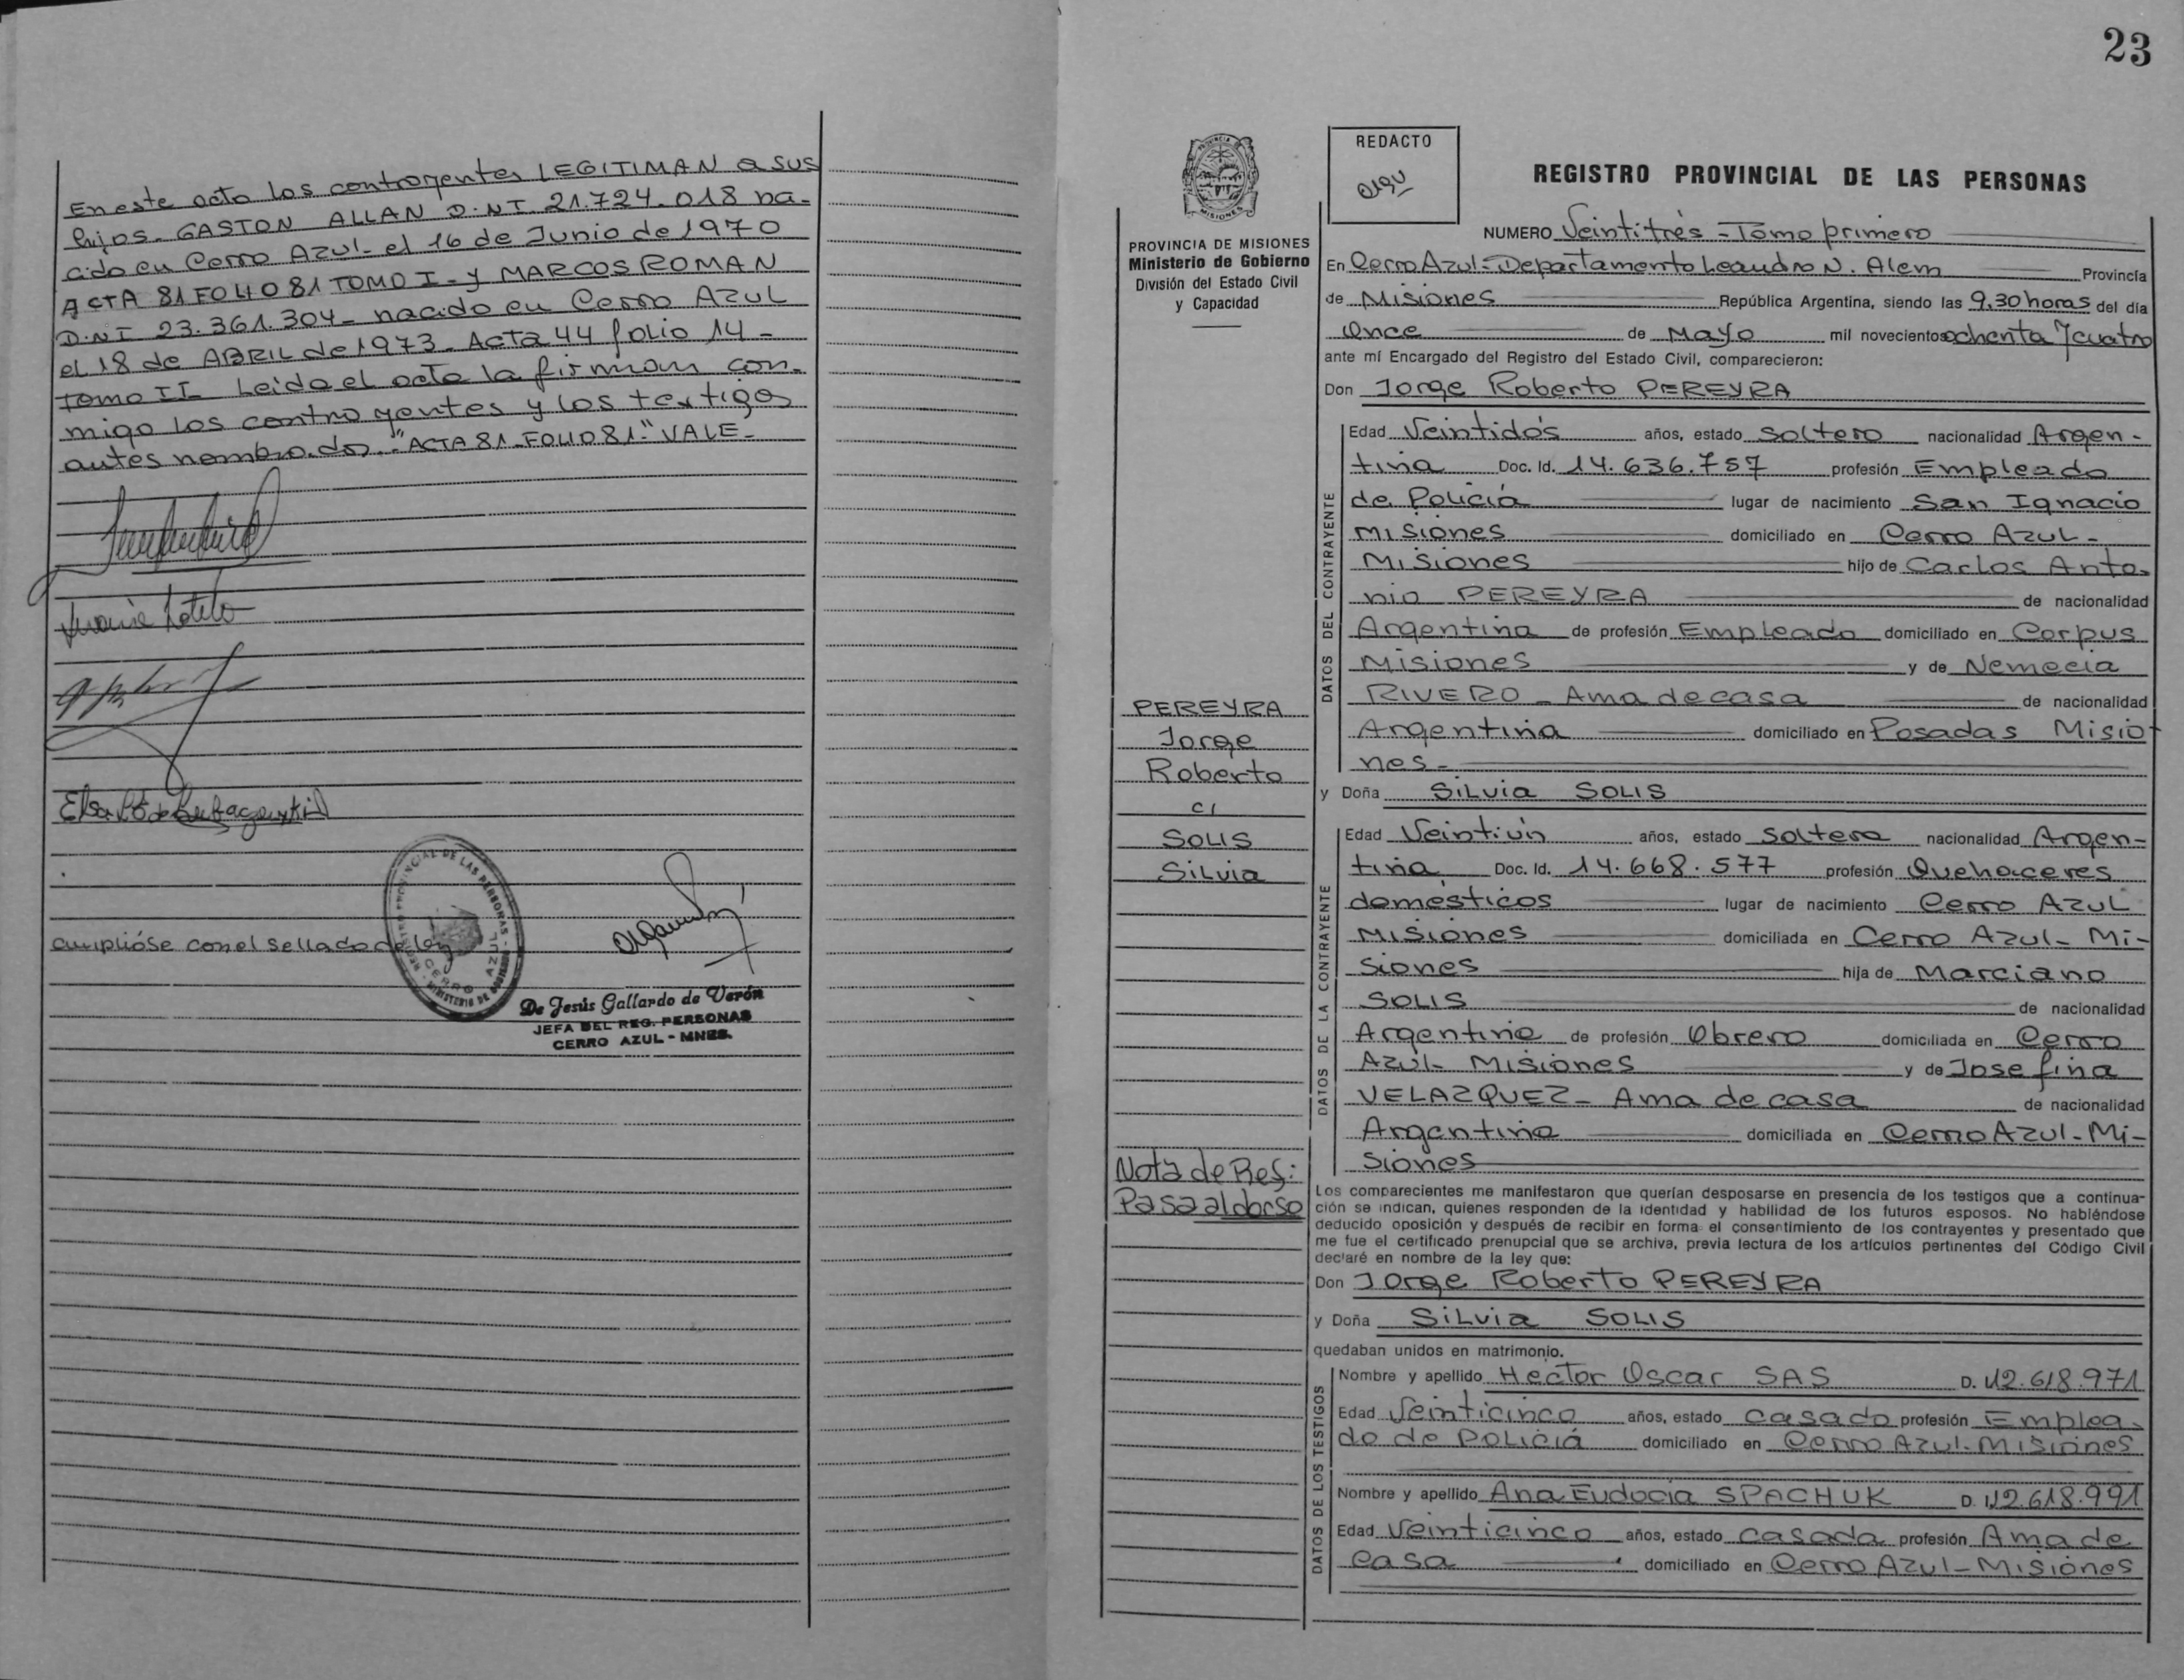 En este acto los contrayentes LEGITIMAN a sus
hijos - GASTON ALLAN D.NI 21.724.018 na-
cido en Cerro Azul - el 16 de Junio de 1970
ACTA 81 FOLIO 81 TOMO I - y MARCOS ROMAN
D.NI 23.361.304 - nacido en Cerro AZUL
el 18 de ABRIL de 1973 - Acta 44 folio 14 -
Tomo II - Leida el acta la firman con-
migo los contrayentes y los testigos
antes nombrados. "ACTA 81 - FOLIO 81 -" VALE -
Cumplióse con el sellado de ley
REGISTRO PROVINCIAL DE LAS PERSONAS - MINISTERIO DE GOBIERNO
CERRO AZUL
De Jesús Gallardo de Verón
JEFA DEL REG. PERSONAS
CERRO AZUL - MNES.
23
REDACTO
PROVINCIA DE MISIONES
Ministerio de Gobierno
División del Estado Civil
y Capacidad
REGISTRO PROVINCIAL DE LAS PERSONAS
NUMERO Veintitrés - Tomo primero
En Cerro Azul - Departamento Leandro N. Alem Provincia
de Misiones República Argentina, siendo las 9,30 horas del día
Once de Mayo mil novecientos ochenta y cuatro
ante mí Encargado del Registro del Estado Civil, comparecieron:
Don Jorge Roberto PEREYRA
DATOS DEL CONTRAYENTE
Edad Veintidós años, estado Soltero nacionalidad Argen-
tina Doc. Id. 14.636.757 profesión Empleado
de Policía lugar de nacimiento San Ignacio
Misiones domiciliado en Cerro AZUL -
Misiones hijo de Carlos Anto-
nio PEREYRA de nacionalidad
Argentina de profesión Empleado domiciliado en Corpus
Misiones y de Nemecia
RIVERO - Ama de casa de nacionalidad
Argentina domiciliado en Posadas Misio-
nes -
y Doña Silvia SOLIS
PEREYRA
Jorge
Roberto
c/
SOLIS
Silvia
DATOS DE LA CONTRAYENTE
Edad Veintiún años, estado Soltera nacionalidad Argen-
tina Doc. Id. 14.668.577 profesión Quehaceres
domésticos lugar de nacimiento Cerro AZUL
Misiones domiciliada en Cerro AZUL - Mi-
siones hija de Marciano
SOLIS de nacionalidad
Argentina de profesión Obrero domiciliada en Cerro
Azul - Misiones y de Josefina
VELAZQUEZ - Ama de casa de nacionalidad
Argentina domiciliada en Cerro Azul - Mi-
siones
Nota de Ref:
Pasa al dorso
Los comparecientes me manifestaron que querían desposarse en presencia de los testigos que a continua-
ción se indican, quienes responden de la identidad y habilidad de los futuros esposos. No habiéndose
deducido oposición y después de recibir en forma el consentimiento de los contrayentes y presentado que
me fue el certificado prenupcial que se archiva, previa lectura de los artículos pertinentes del Código Civil
declaré en nombre de la ley que:
Don Jorge Roberto PEREYRA
y Doña Silvia SOLIS
quedaban unidos en matrimonio.
DATOS DE LOS TESTIGOS
Nombre y apellido Hector Oscar SAS D. 12.618.971
Edad Veinticinco años, estado Casado profesión Emplea-
do de Policía domiciliado en Cerro Azul - Misiones
Nombre y apellido Ana Eudocia SPACHUK D. 12.618.991
Edad Veinticinco años, estado Casada profesión Ama de
Casa domiciliado en Cerro Azul - Misiones